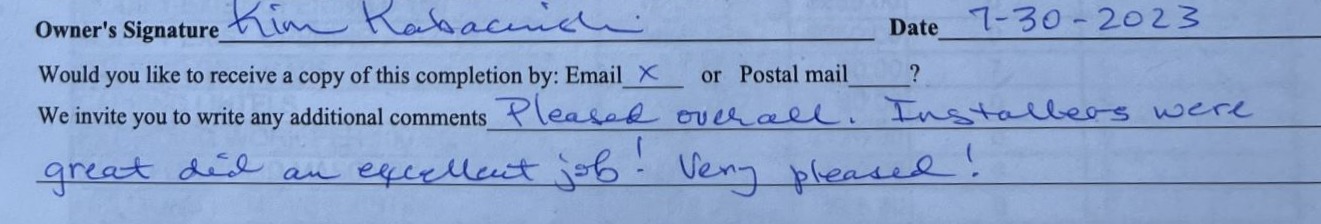 Owner's Signature Kim Date 7-30-2023
Would you like to receive a copy of this completion by: Email X or Postal mail ?
We invite you to write any additional comments Pleased overall. Installers were
great did an excellent job! Very pleased!